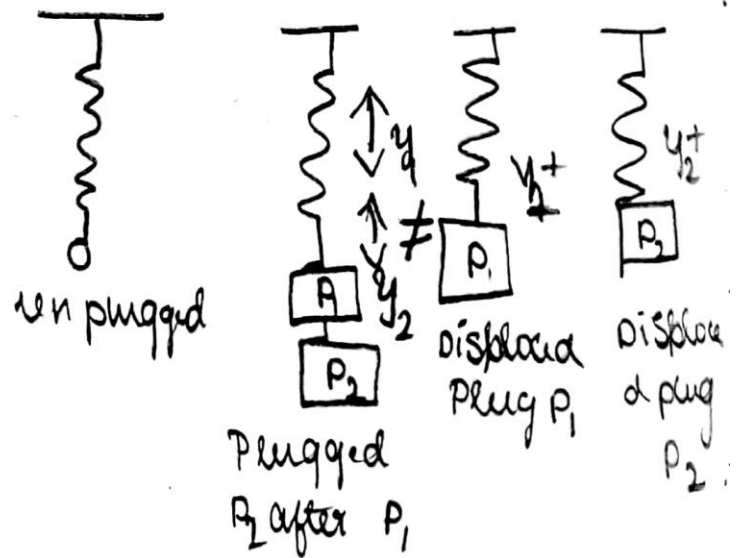 unplugged
y
y₂
P₁
P₂
Plugged
P₂ after P₁
≠
P₁
Displaced
Plug P₁
y₂⁺
P₂
Displace
d plug
P₂.